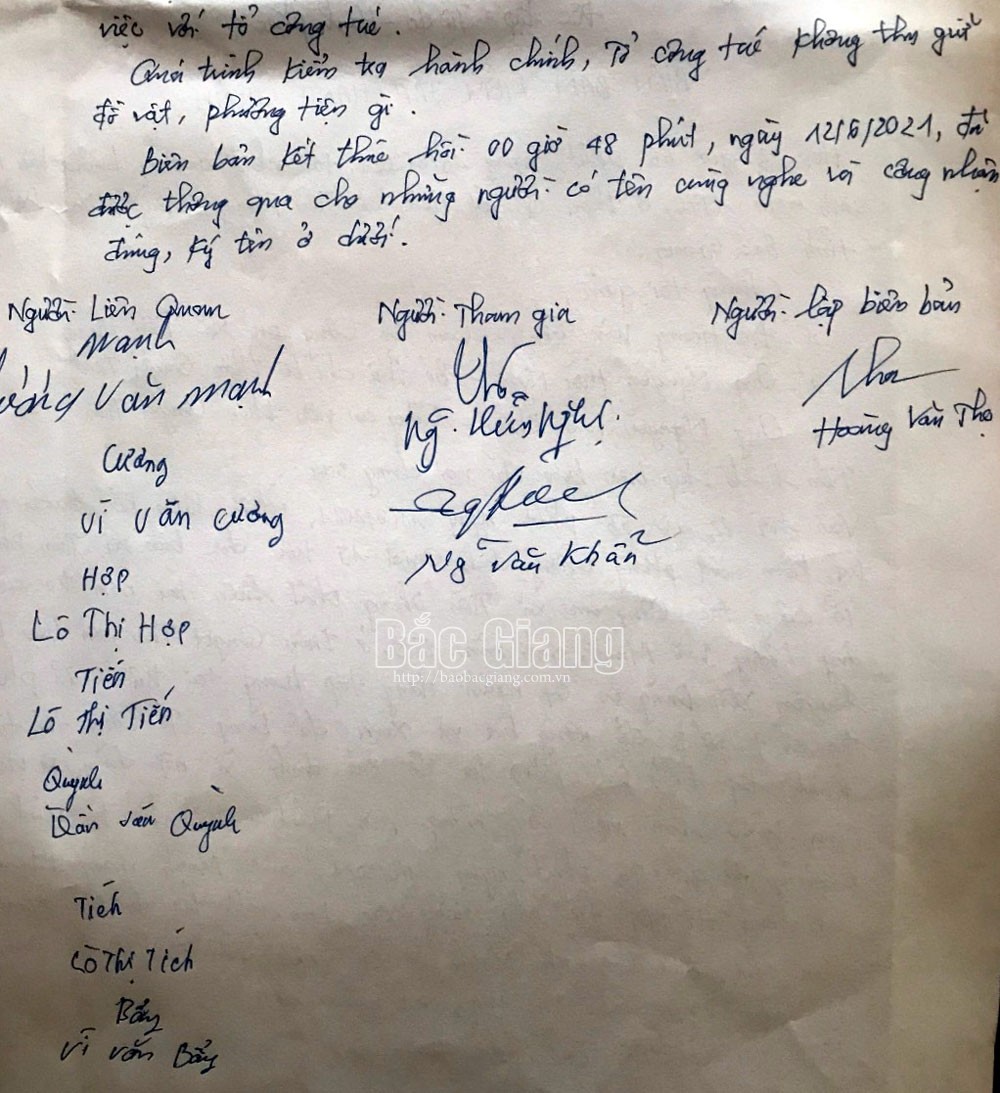 việc với tổ công tác.
Quá trình kiểm tra hành chính, Tổ công tác không thu giữ
đồ vật, phương tiện gì.
Biên bản kết thúc hồi 00 giờ 48 phút, ngày 12/6/2021, đã
được thông qua cho những người có tên cùng nghe và công nhận
đúng, ký tên ở dưới.
Người Liên Quan
Người Tham gia
Người lập biên bản
Mạnh
Văn Mạnh
Hoàng Văn Thọ
Cương
Vi Văn Cương
Ng Văn Khẩn
Hợp
Lò Thị Hợp
Bắc Giang
http://baobacgiang.com.vn
Tiến
Lò Thị Tiến
Quỳnh
Văn Quỳnh
Tích
Lò Thị Tích
Bẩy
Vi Văn Bẩy